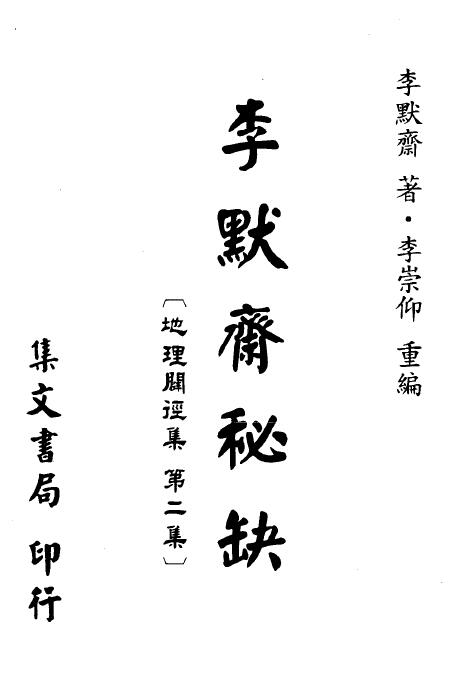 李默齋 著·李崇仰 重編
李默齋秘缺
〔地理闢徑集 第二集〕
集文書局 印行